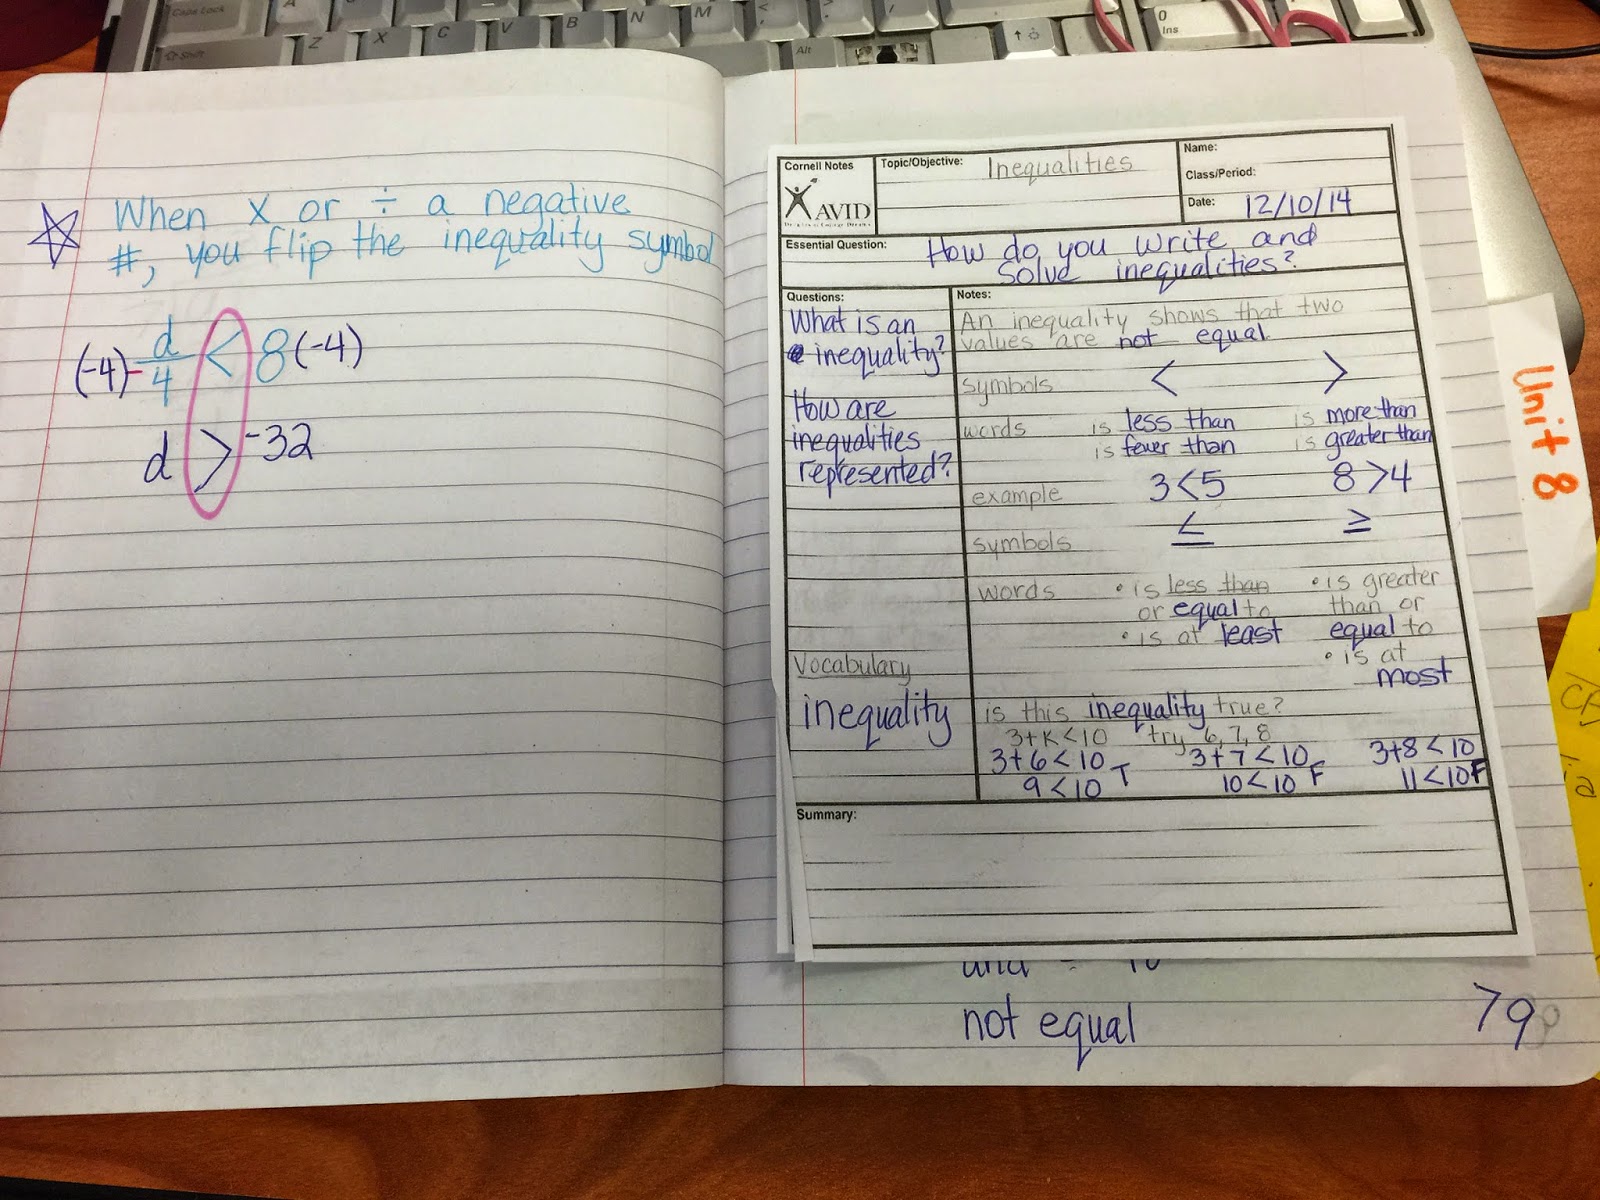 Caps Lock
A
Shift
Z
X
C
V
B
N
M
Alt
0
Ins
When x or ÷ a negative
#, you flip the inequality symbol
(-4) -d/4 < 8 (-4)
d > -32
Cornell Notes
AVID
Topic/Objective: Inequalities
Name:
Class/Period:
Date: 12/10/14
Essential Question: How do you write and
solve inequalities?
Questions:
What is an
inequality?
How are
inequalities
represented?
Vocabulary
inequality
Notes:
An inequality shows that two
values are not equal.
symbols < >
words is less than is more than
is fewer than is greater than
example 3<5 8>4
symbols ≤ ≥
words • is less than • is greater
or equal to than or
• is at least equal to
• is at
most
is this inequality true?
3+k<10 try 6, 7, 8
3+6<10 3+7<10 3+8<10
9<10 T 10<10 F 11<10 F
Summary:
not equal
79
Unit 8